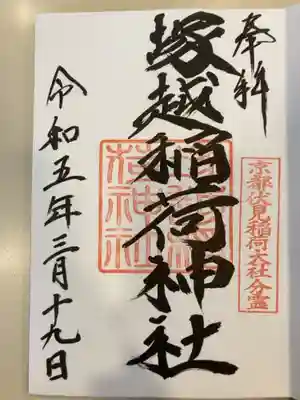 奉拝
京都伏見稲荷大社分霊
塚越稲荷神社
令和五年三月十九日